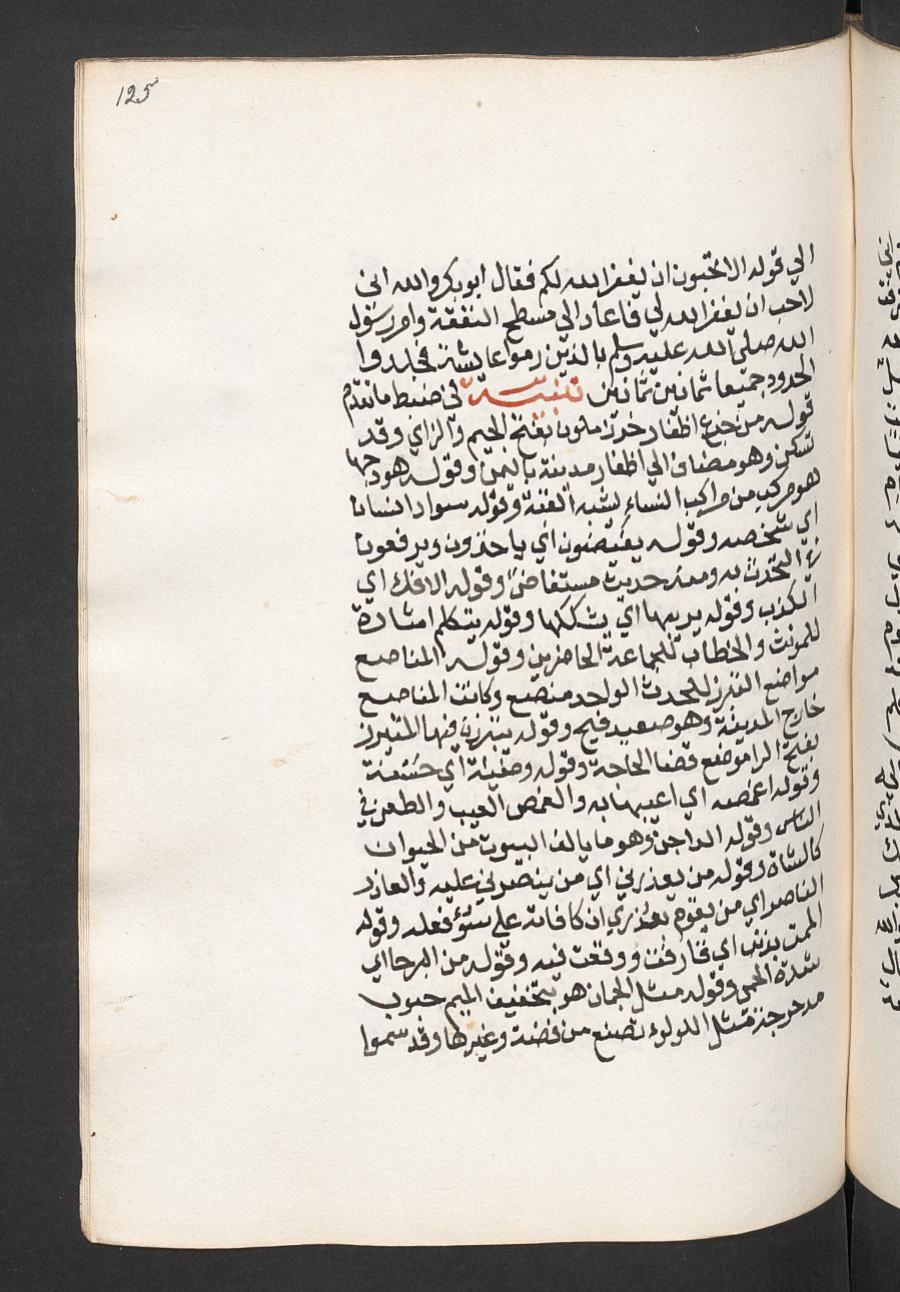 125
الي قوله الا تحبون ان يغفر الله لكم فقال ابو بكر والله اني
لاحب ان يغفر الله لي فاعاد الي مسطح النفقة وامر رسول
الله صلى الله عليه وسلم بالذين رموا عايشة فجلدوا
الحدود جميعا ثمانين ثمانين تنبيه في ضبط ما تقدم
قوله من جزع اظفار خرز ملون بفتح الجيم والزاي وقد
تسكن وهو مضاف الي اظفار مدينة باليمن وقوله هودجها
هو مركب من مراكب النساء يشبه القبة وقوله سواد انسان
اي شخصه وقوله يفيضون اي ياخذون ويرفعون
في التحدث به ومنه حديث مستفاض وقوله الافك اي
الكذب وقوله يريبها اي يشككها وقوله يتكلم اشارة
للمونث والخطاب للجماعة الحاضرين وقوله المناصع
مواضع التبرز للحدث الواحد منصع وكانت المناصع
خارج المدينة وهو صعيد فيح وقوله يتبرزن فيها المتبرز
بفتح الرا موضع قضا الحاجة وقوله وضيئة اي حسنة
وقوله اغمصه اي اعيبها به والغمص العيب والطعن في
الناس وقوله الداجن وهو ما يالف البيوت من الحيوان
كالشاة وقوله من يعذرني اي من ينصرني عليه والعاذر
الناصر اي من يقوم بعذري ان كافاته علي سؤ فعله وقوله
الممت بذنب اي قارفت ووقعت فيه وقوله من البرحا اي
شدة الحمى وقوله مثل الجمان هو بتخفيف الميم حبوب
مدحرجة مثل اللولوء تصنع من فضة وغيرها وقد سموا